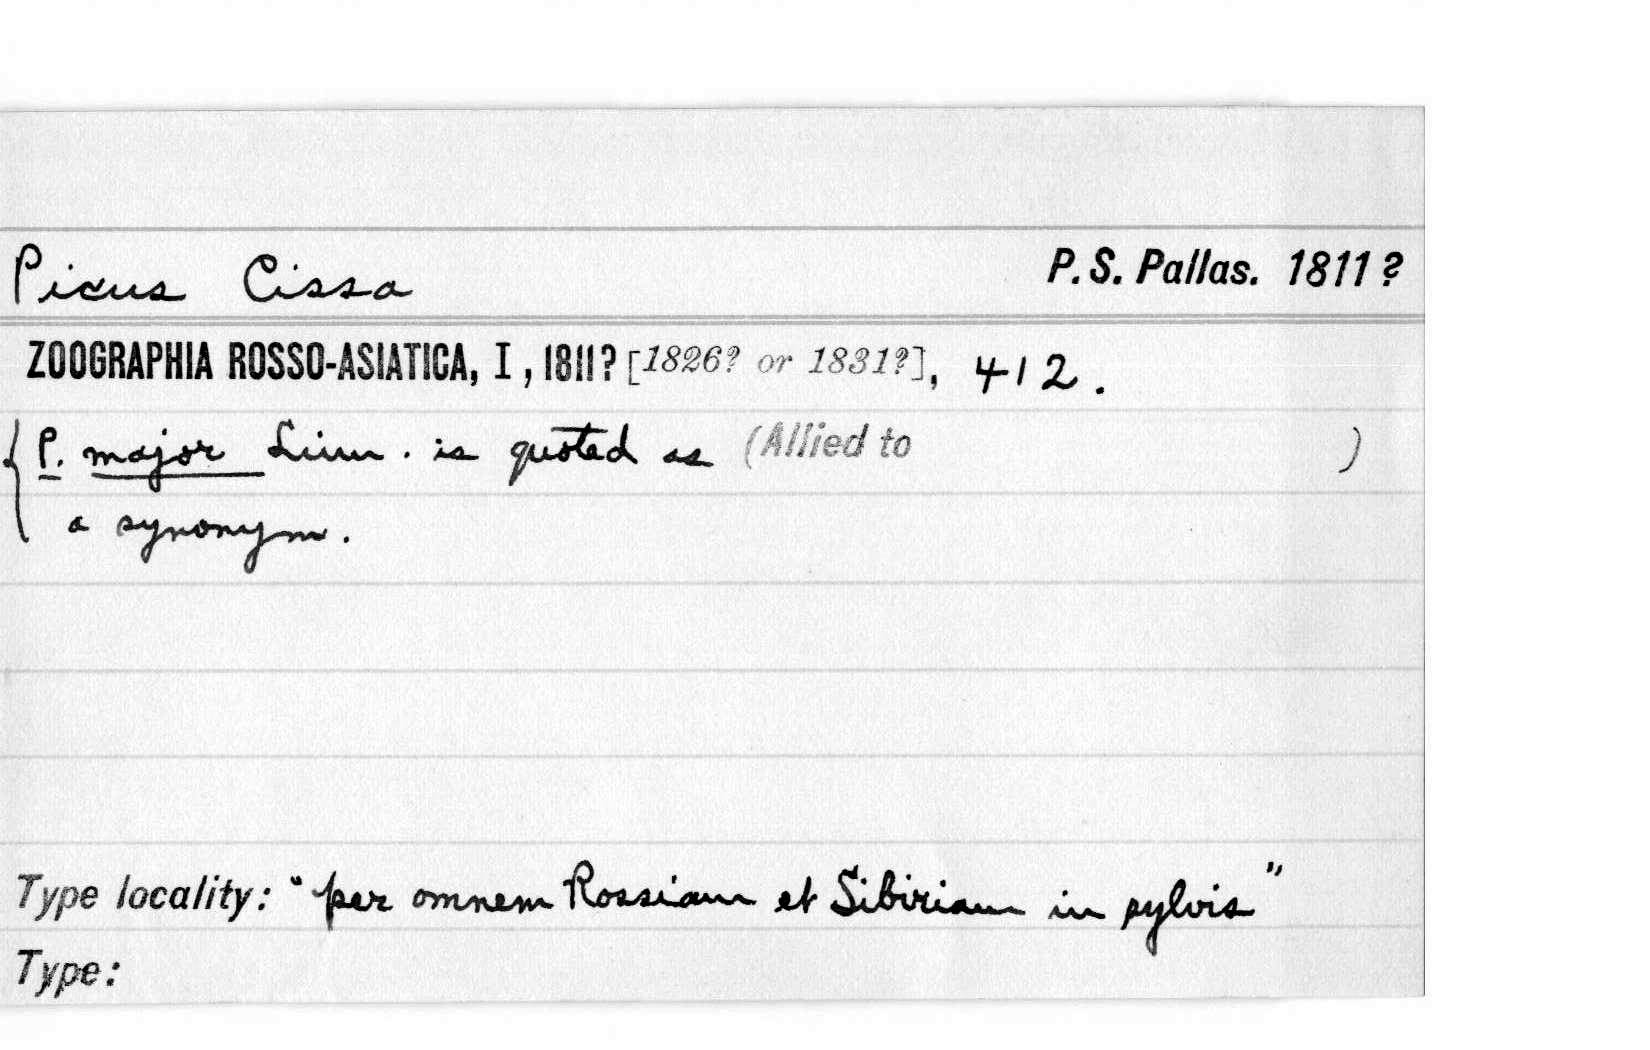 Picus Cissa P. S. Pallas. 1811?
ZOOGRAPHIA ROSSO-ASIATICA, I, 1811? [1826? or 1831?], 412.
{ P. major Linn. is quoted as (Allied to )
a synonym.
Type locality: "per omnem Rossiam et Sibiriam in sylvis"
Type: